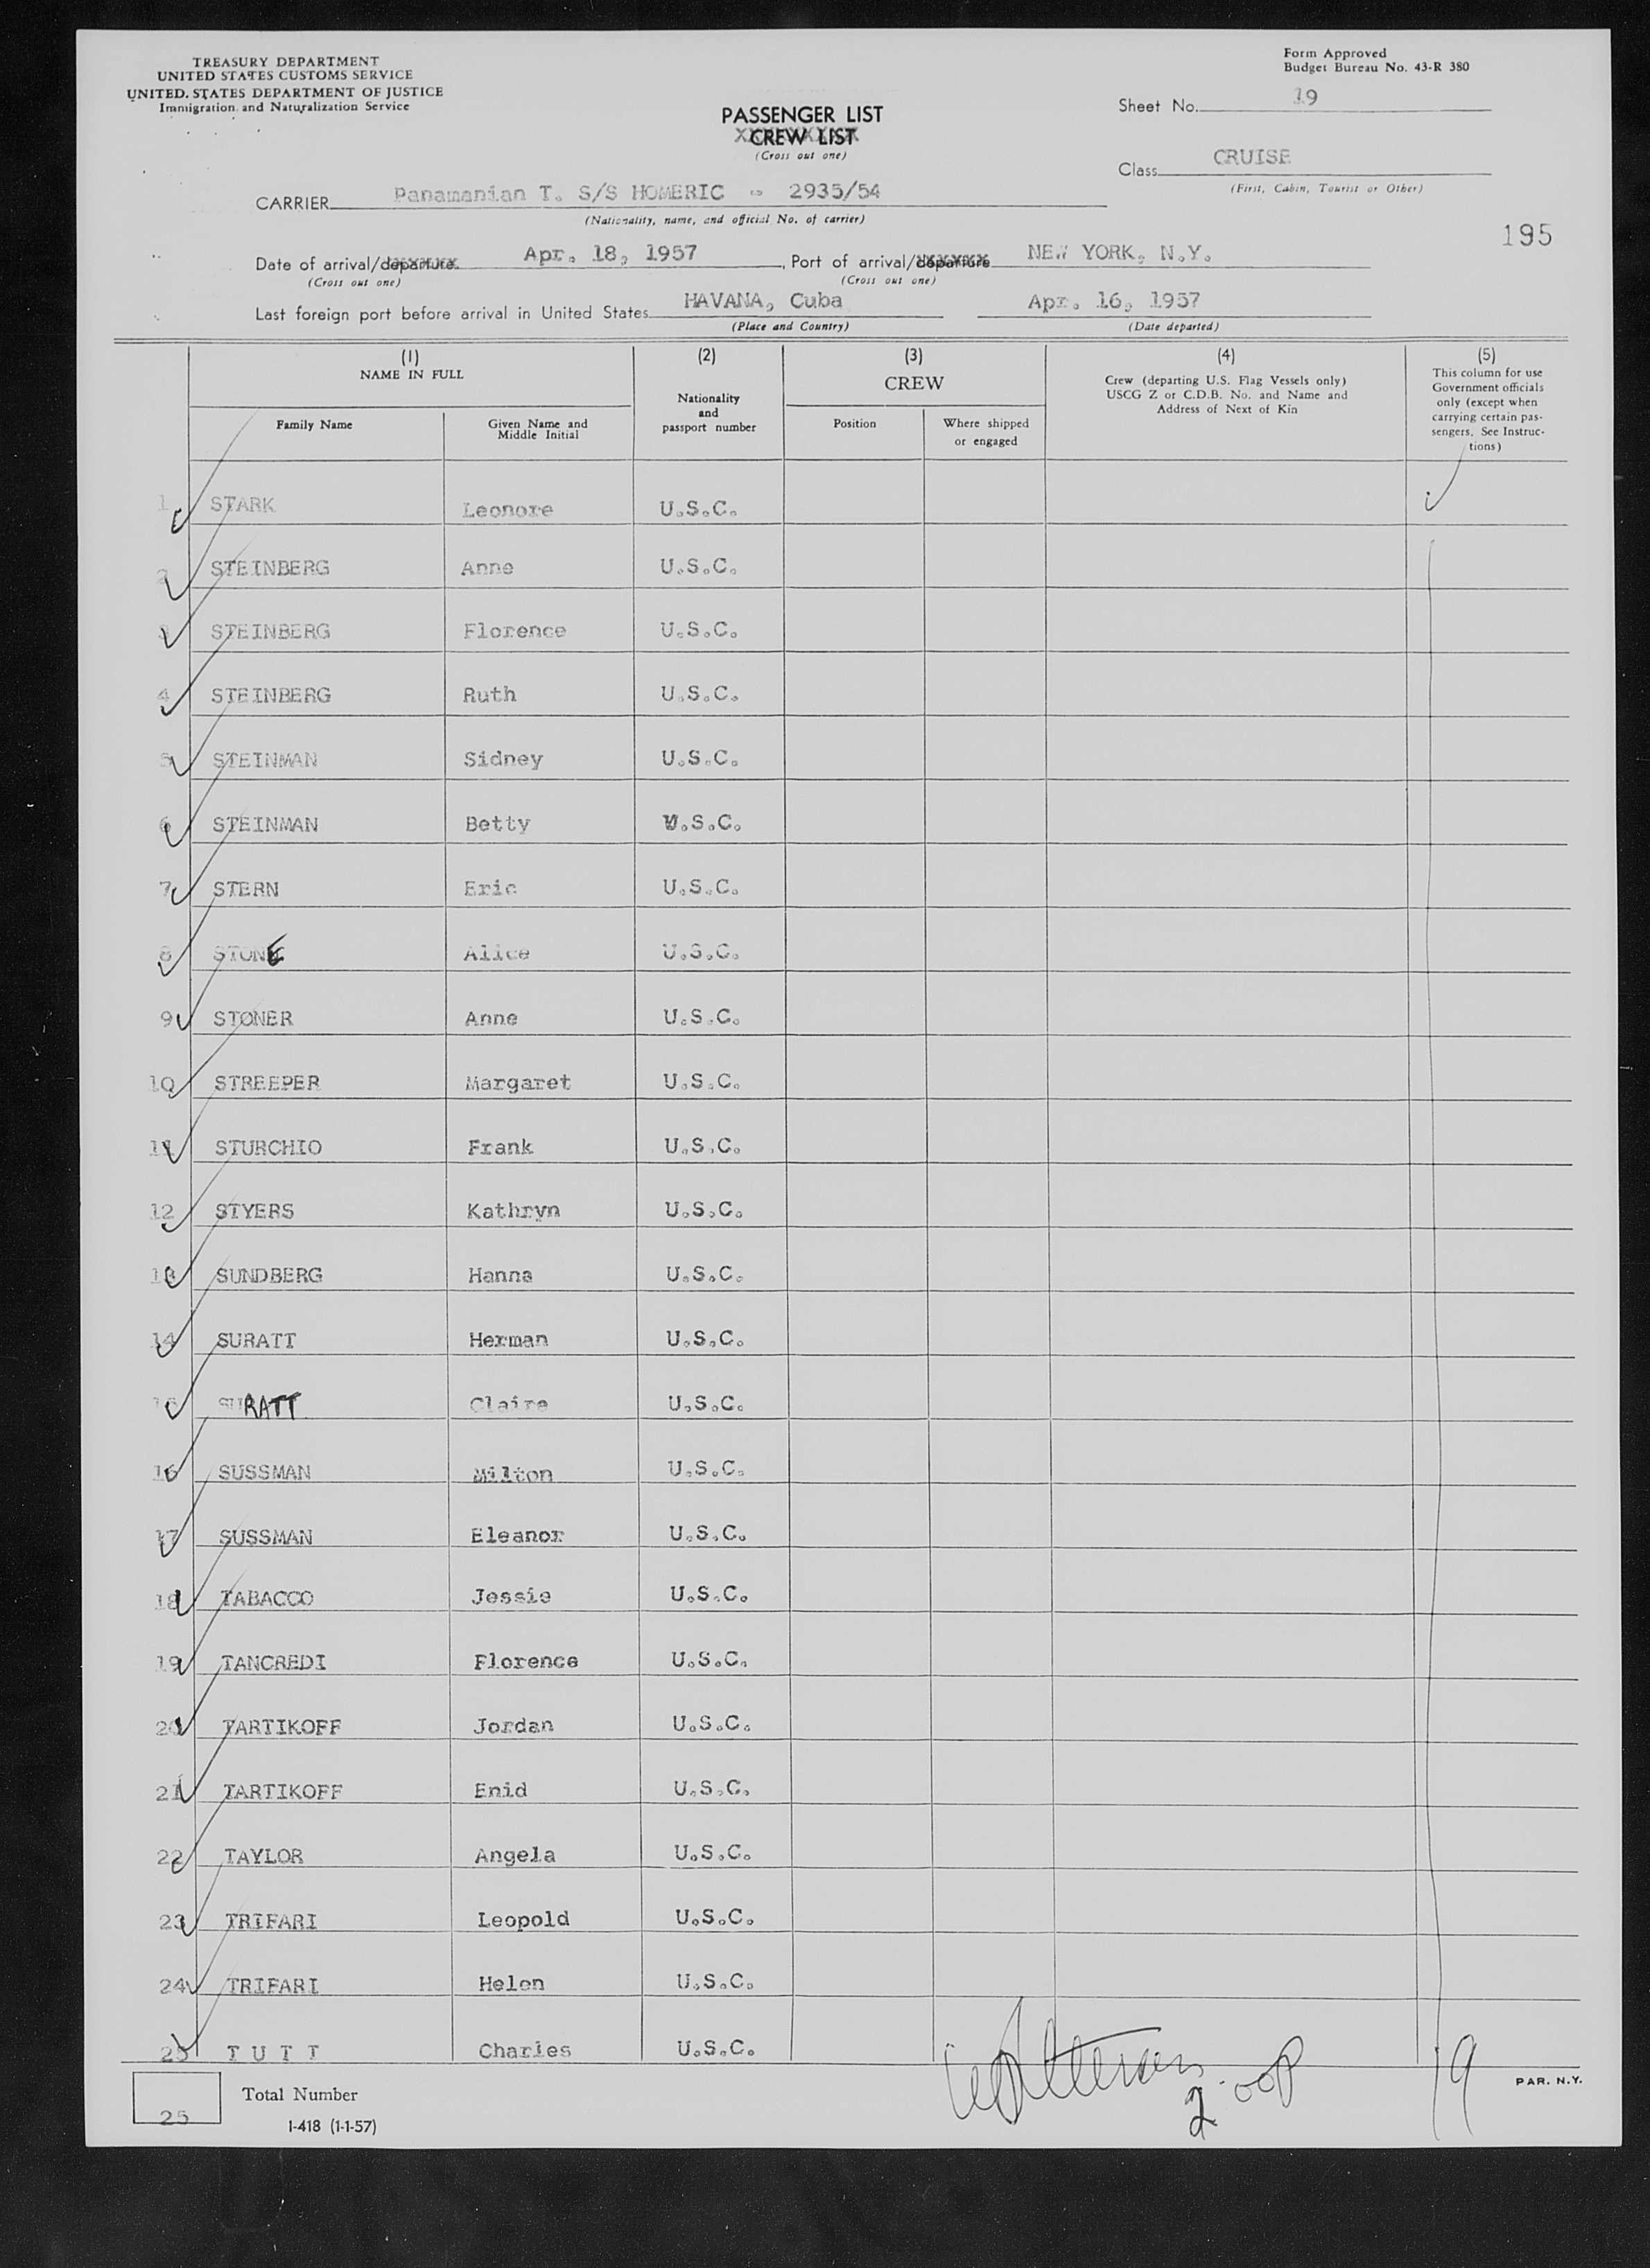 TREASURY DEPARTMENT
UNITED STATES CUSTOMS SERVICE
UNITED STATES DEPARTMENT OF JUSTICE
Immigration and Naturalization Service
Form Approved
Budget Bureau No. 43-R 380
Sheet No. 19
PASSENGER LIST
CREW LIST
(Cross out one)
Class CRUISE
(First, Cabin, Tourist or Other)
CARRIER Panamanian T. S/S HOMERIC - 2935/54
(Nationality, name, and official No. of carrier)
195
Date of arrival/departure Apr. 18, 1957, Port of arrival/departure NEW YORK, N.Y.
(Cross out one) (Cross out one)
Last foreign port before arrival in United States HAVANA, Cuba Apr. 16, 1957
(Place and Country) (Date departed)
(1) NAME IN FULL
Family Name
Given Name and Middle Initial
(2) Nationality and passport number
(3) CREW
Position
Where shipped or engaged
(4) Crew (departing U.S. Flag Vessels only) USCG Z or C.D.B. No. and Name and Address of Next of Kin
(5) This column for use Government officials only (except when carrying certain passengers. See Instructions)
1 STARK Leonore U.S.C.
2 STEINBERG Anne U.S.C.
3 STEINBERG Florence U.S.C.
4 STEINBERG Ruth U.S.C.
5 STEINMAN Sidney U.S.C.
6 STEINMAN Betty U.S.C.
7 STERN Eric U.S.C.
8 STONE Alice U.S.C.
9 STONER Anne U.S.C.
10 STREEPER Margaret U.S.C.
11 STURCHIO Frank U.S.C.
12 STYERS Kathryn U.S.C.
13 SUNDBERG Hanna U.S.C.
14 SURATT Herman U.S.C.
15 SURATT Claire U.S.C.
16 SUSSMAN Milton U.S.C.
17 SUSSMAN Eleanor U.S.C.
18 TABACCO Jessie U.S.C.
19 TANCREDI Florence U.S.C.
20 TARTIKOFF Jordan U.S.C.
21 TARTIKOFF Enid U.S.C.
22 TAYLOR Angela U.S.C.
23 TRIFARI Leopold U.S.C.
24 TRIFARI Helen U.S.C.
25 TUTT Charles U.S.C.
25 Total Number
I-418 (1-1-57)
19
PAR. N.Y.